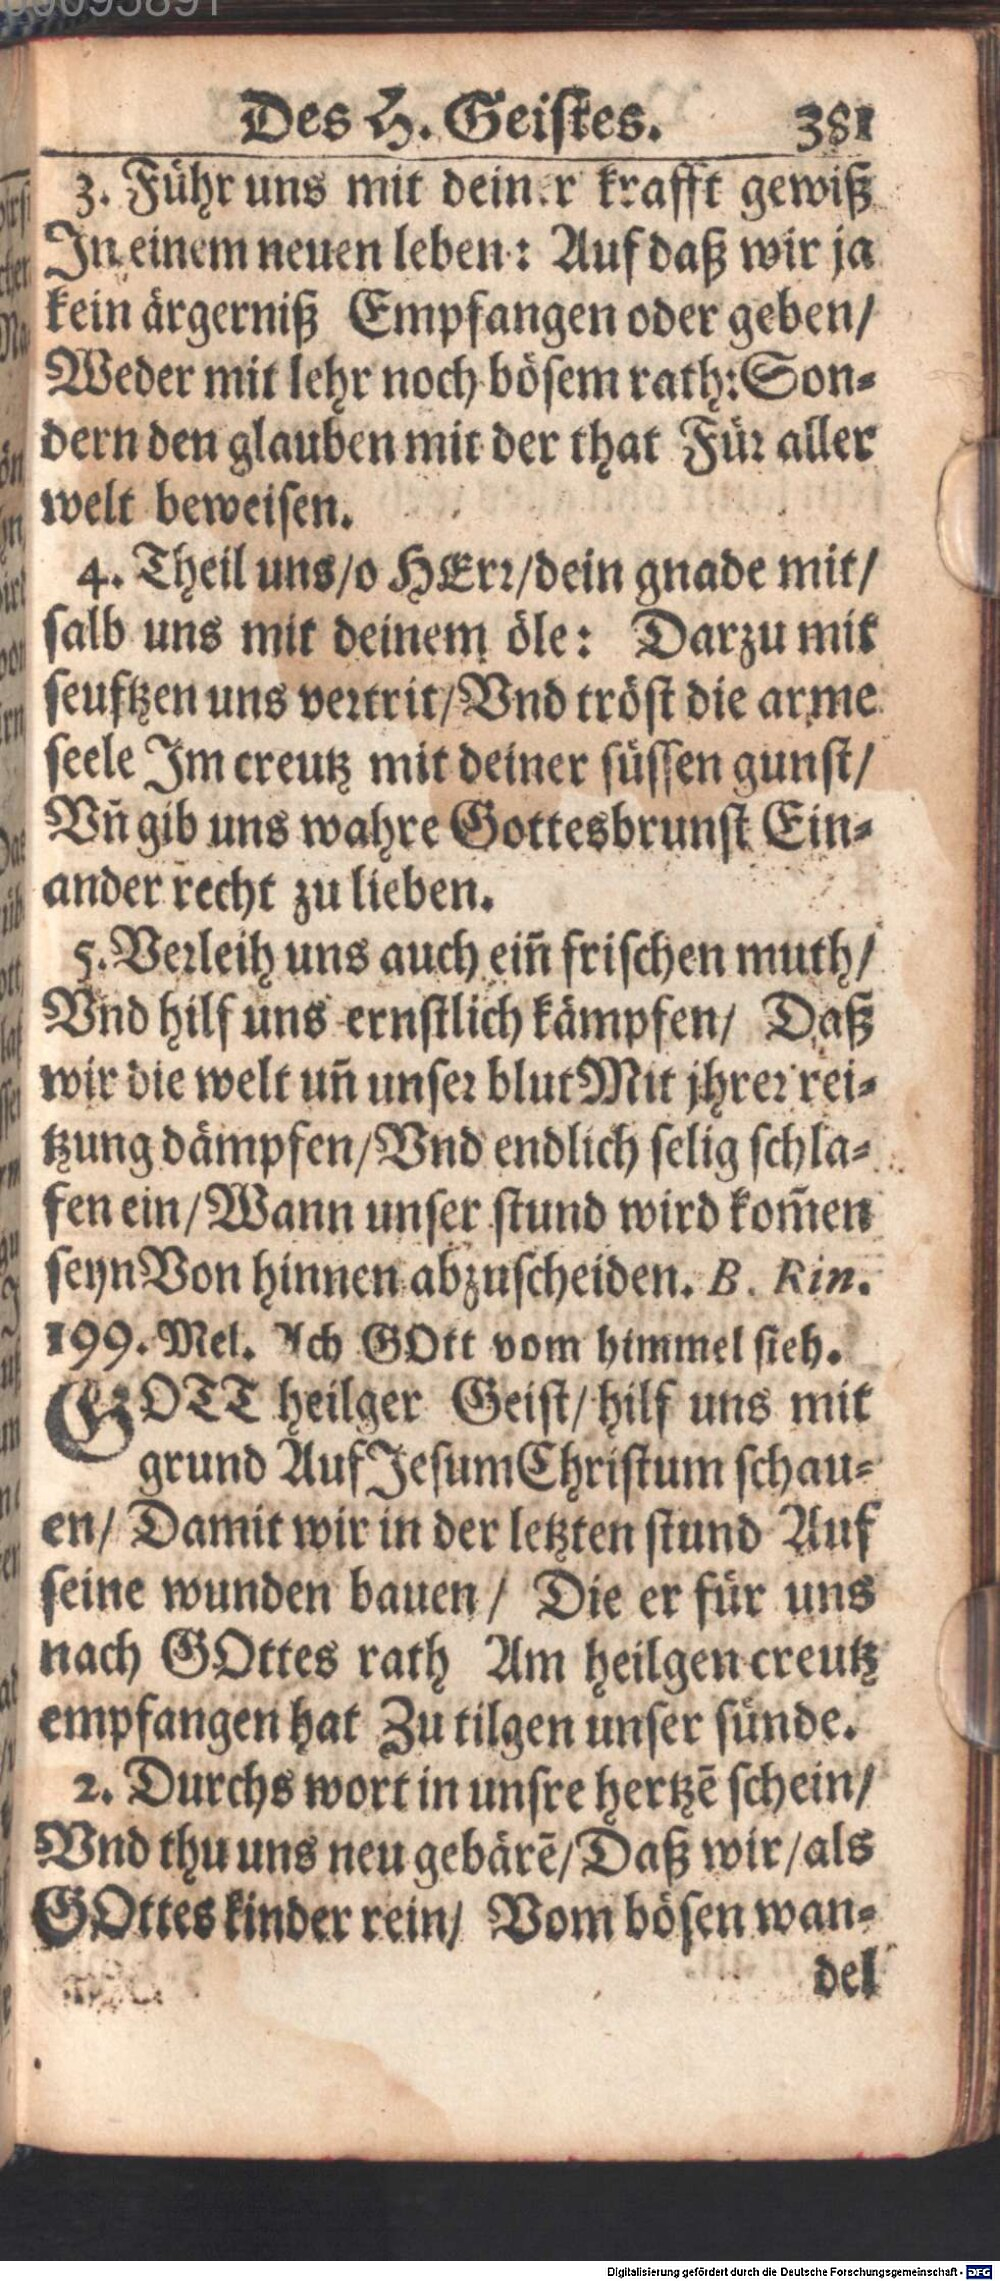 Des H. Geistes. 381
3. Führ uns mit deiner krafft gewiß
In einem neuen leben: Auf daß wir ja
kein ärgerniß Empfangen oder geben/
Weder mit lehr noch bösem rath: Son-
dern den glauben mit der that Für aller
welt beweisen.
4. Theil uns/o HErr/dein gnade mit/
salb uns mit deinem öle: Darzu mit
seuftzen uns vertrit/Vnd tröst die arme
seele Im creutz mit deiner süssen gunst/
Vñ gib uns wahre Gottesbrunst Ein-
ander recht zu lieben.
5. Verleih uns auch eiñ frischen muth/
Vnd hilf uns ernstlich kämpfen/ Daß
wir die welt uñ unser blut Mit jhrer rei-
tzung dämpfen/Vnd endlich selig schla-
fen ein/Wann unser stund wird kom̃en
seyn Von hinnen abzuscheiden. B. Rin.
199. Mel. Ach GOtt vom himmel sieh.
GOTT heilger Geist/ hilf uns mit
grund Auf Jesum Christum schau-
en/ Damit wir in der letzten stund Auf
seine wunden bauen/ Die er für uns
nach GOttes rath Am heilgen creutz
empfangen hat Zu tilgen unser sünde.
2. Durchs wort in unsre hertzẽ schein/
Vnd thu uns neu gebärẽ/Daß wir/als
GOttes kinder rein/ Vom bösen wan-
del
Digitalisierung gefördert durch die Deutsche Forschungsgemeinschaft - DFG